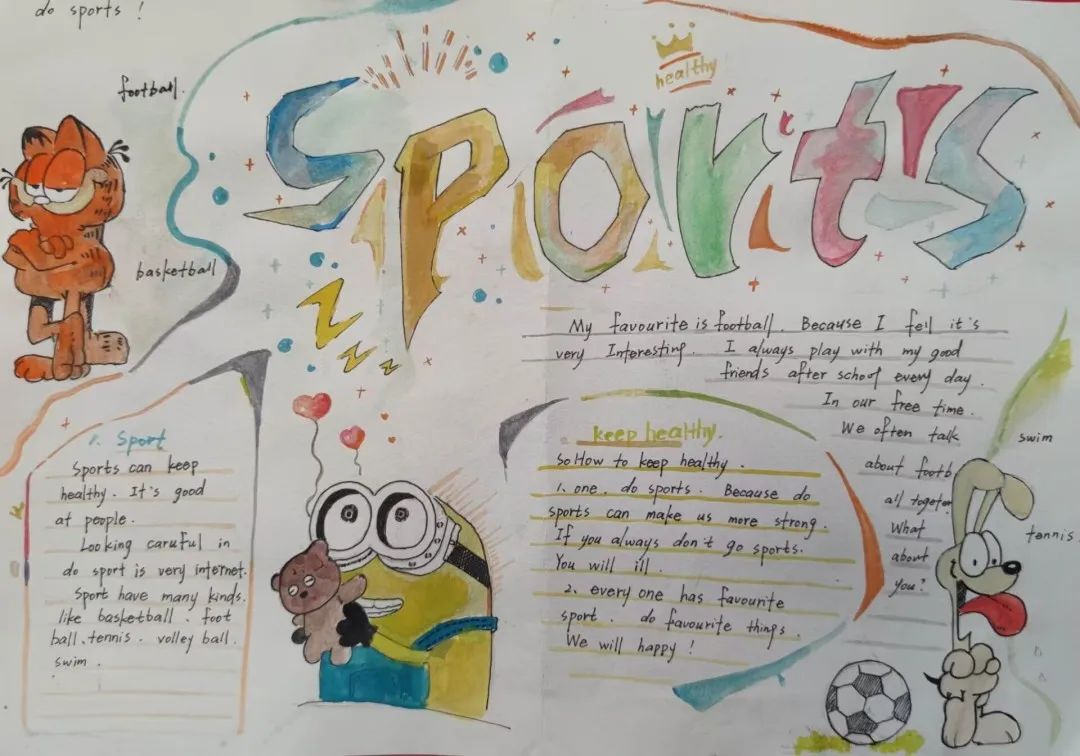 do sports !
healthy
Sports
football.
basketball
My favourite is football. Because I feil it's
very Interesting. I always play with my good
friends after school every day.
In our free time.
We often talk
about footb
all together
What
about
you?
swim
tennis
1. Sport
Sports can keep
healthy. It's good
at people.
Looking caruful in
do sport is very internet.
Sport have many kinds.
like basketball. foot
ball. tennis. volley ball.
swim.
keep healthy.
So How to keep healthy.
1. one. do sports. Because do
sports can make us more strong.
If you always don't go sports.
You will ill.
2. every one has favourite
sport. do favourite things.
We will happy !